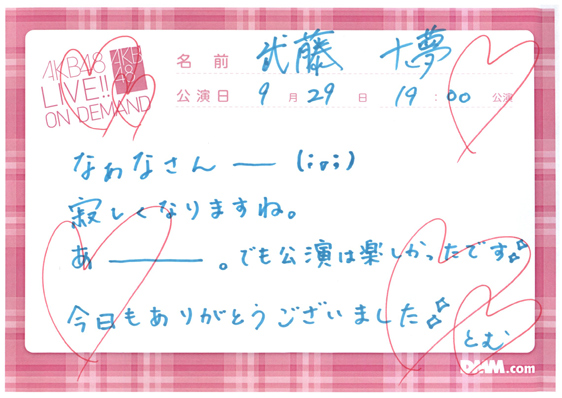 AKB48
LIVE!!
ON DEMAND
AKB
48
名前 武藤 十夢
公演日 9月29日 19:00公演
なぁなさんー(;o;)
寂しくなりますね。
あー。でも公演は楽しかったです
今日もありがとうございました
とむ
DMM.com